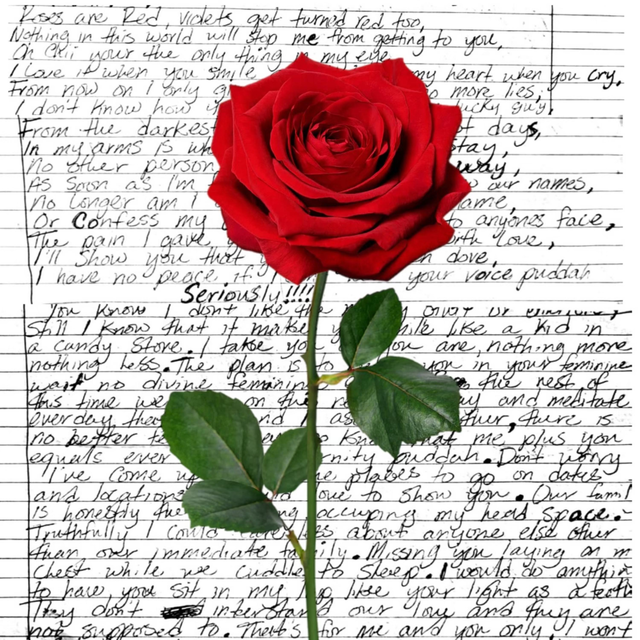 Roses are Red, violets get turned red too,
Nothing in this world will stop me from getting to you,
Oh Chii your the only thing in my eye
I Love it when you smile my heart when you cry,
From now on I only g more lies,
I don't know how y ucky guy,
From the darkest t days,
In my arms is wh stay,
no other person way,
As Soon as I'm our names,
no longer am I ame,
Or Confess my to anyones face,
The pain I gave orth love,
I'll show you that dove,
I have no peace if I your voice puddah
Seriously!!!!
You know I don't like the
Still I know that it makes you smile like a kid in
a candy Store. I take yo you are, nothing more
nothing less. The plan is to you in your feminine
no divine feminin the rest of
this time we on the re ay and meditate
everyday the d as ther, there is
no better te o kno that me plus you
equals ever rnity puddah. Don't worry
I've come up e places to go on dates
and locations love to show you. Our famil
is honestly the ng occupying my head space.
Truthfully I could care less about anyone else other
than our immediate family. Missing you laying on m
Chest while we cuddle to sleep. I would do anythin
to have you sit in my lap like your light as a
They don't interstand our love and they are
not supposed to. That's for me and you only. I won't